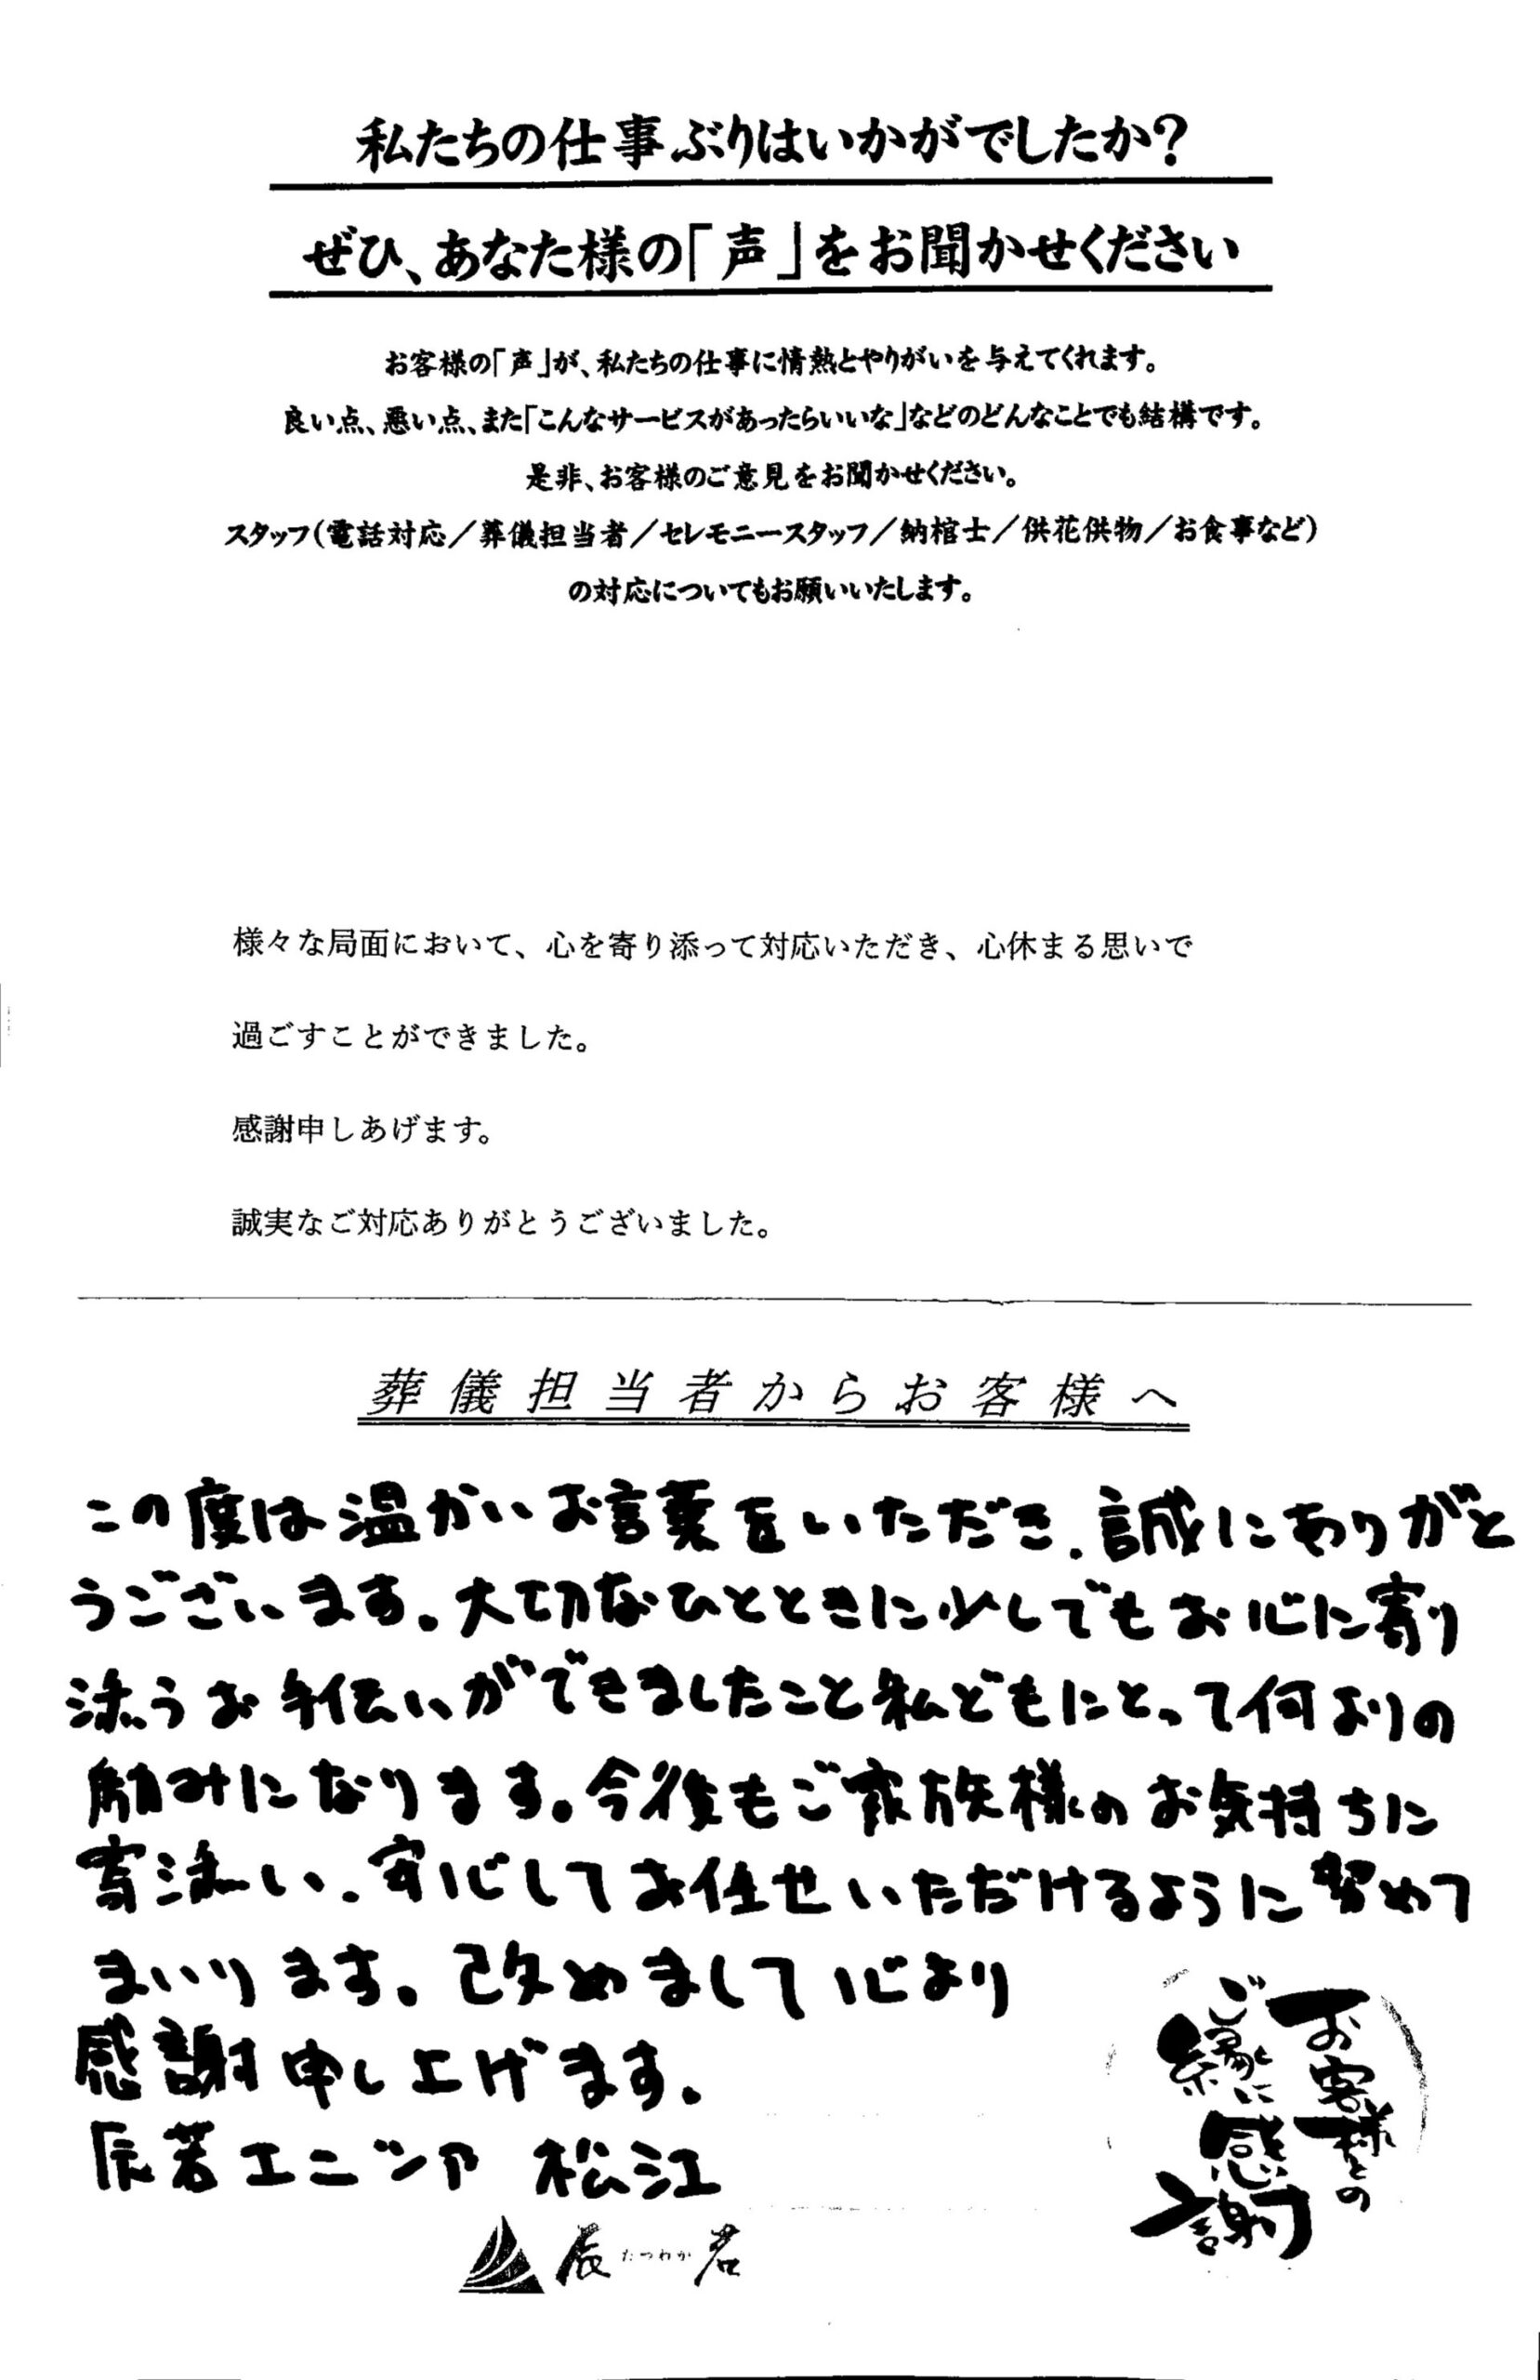 私たちの仕事ぶりはいかがでしたか?
ぜひ、あなた様の「声」をお聞かせください
お客様の「声」が、私たちの仕事に情熱とやりがいを与えてくれます。
良い点、悪い点、また「こんなサービスがあったらいいな」などのどんなことでも結構です。
是非、お客様のご意見をお聞かせください。
スタッフ(電話対応/葬儀担当者/セレモニースタッフ/納棺士/供花供物/お食事など)
の対応についてもお願いいたします。
様々な局面において、心を寄り添って対応いただき、心休まる思いで
過ごすことができました。
感謝申しあげます。
誠実なご対応ありがとうございました。
葬儀担当者からお客様へ
この度は温かいお言葉をいただき、誠にありがと
うございます。大切なひとときに少しでもお心に寄り
添うお手伝いができましたこと私どもにとって何よりの
励みになります。今後もご家族様のお気持ちに
寄添い、安心してお任せいただけるように努めて
まいります。改めまして心より
感謝申し上げます。
辰若エニシア 松江
お客様との
ご縁に
感謝
辰たつわか若